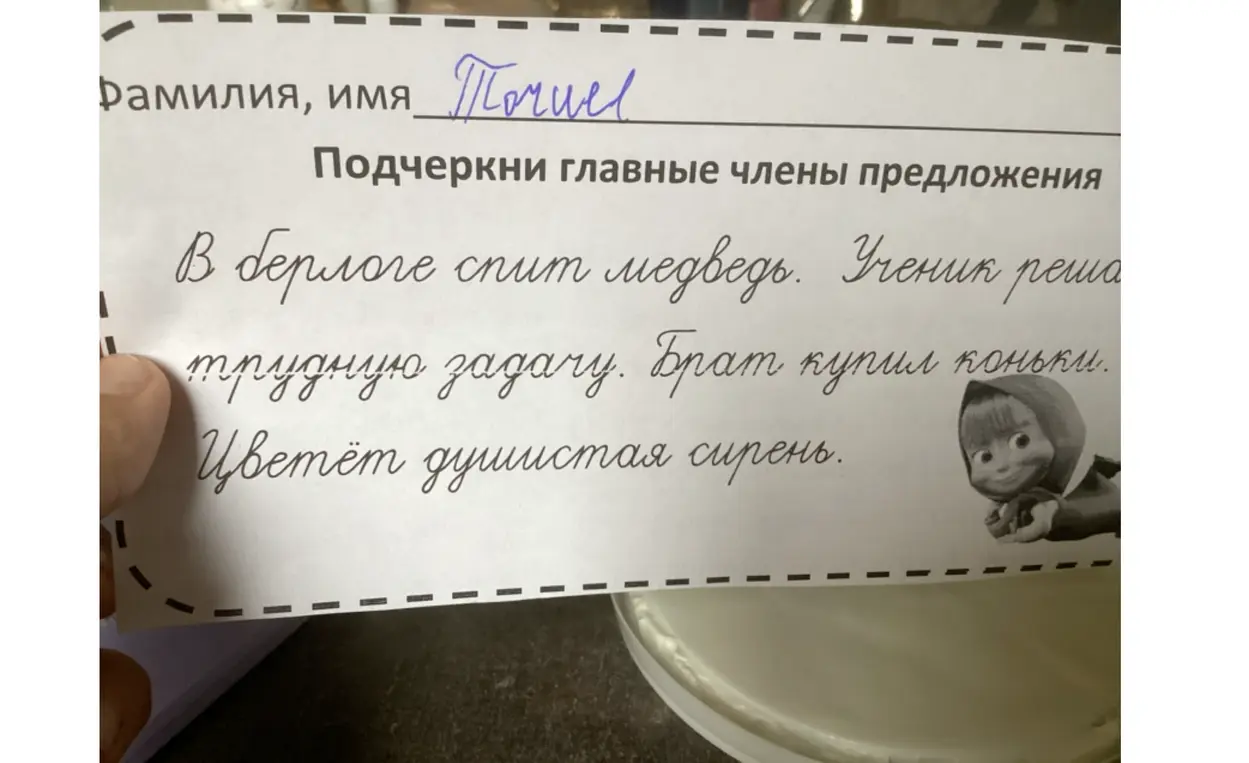 Фамилия, имя
Подчеркни главные члены предложения
В берлоге спит медведь. Ученик реша
трудную задачу. Брат купил коньки.
Цветёт душистая сирень.